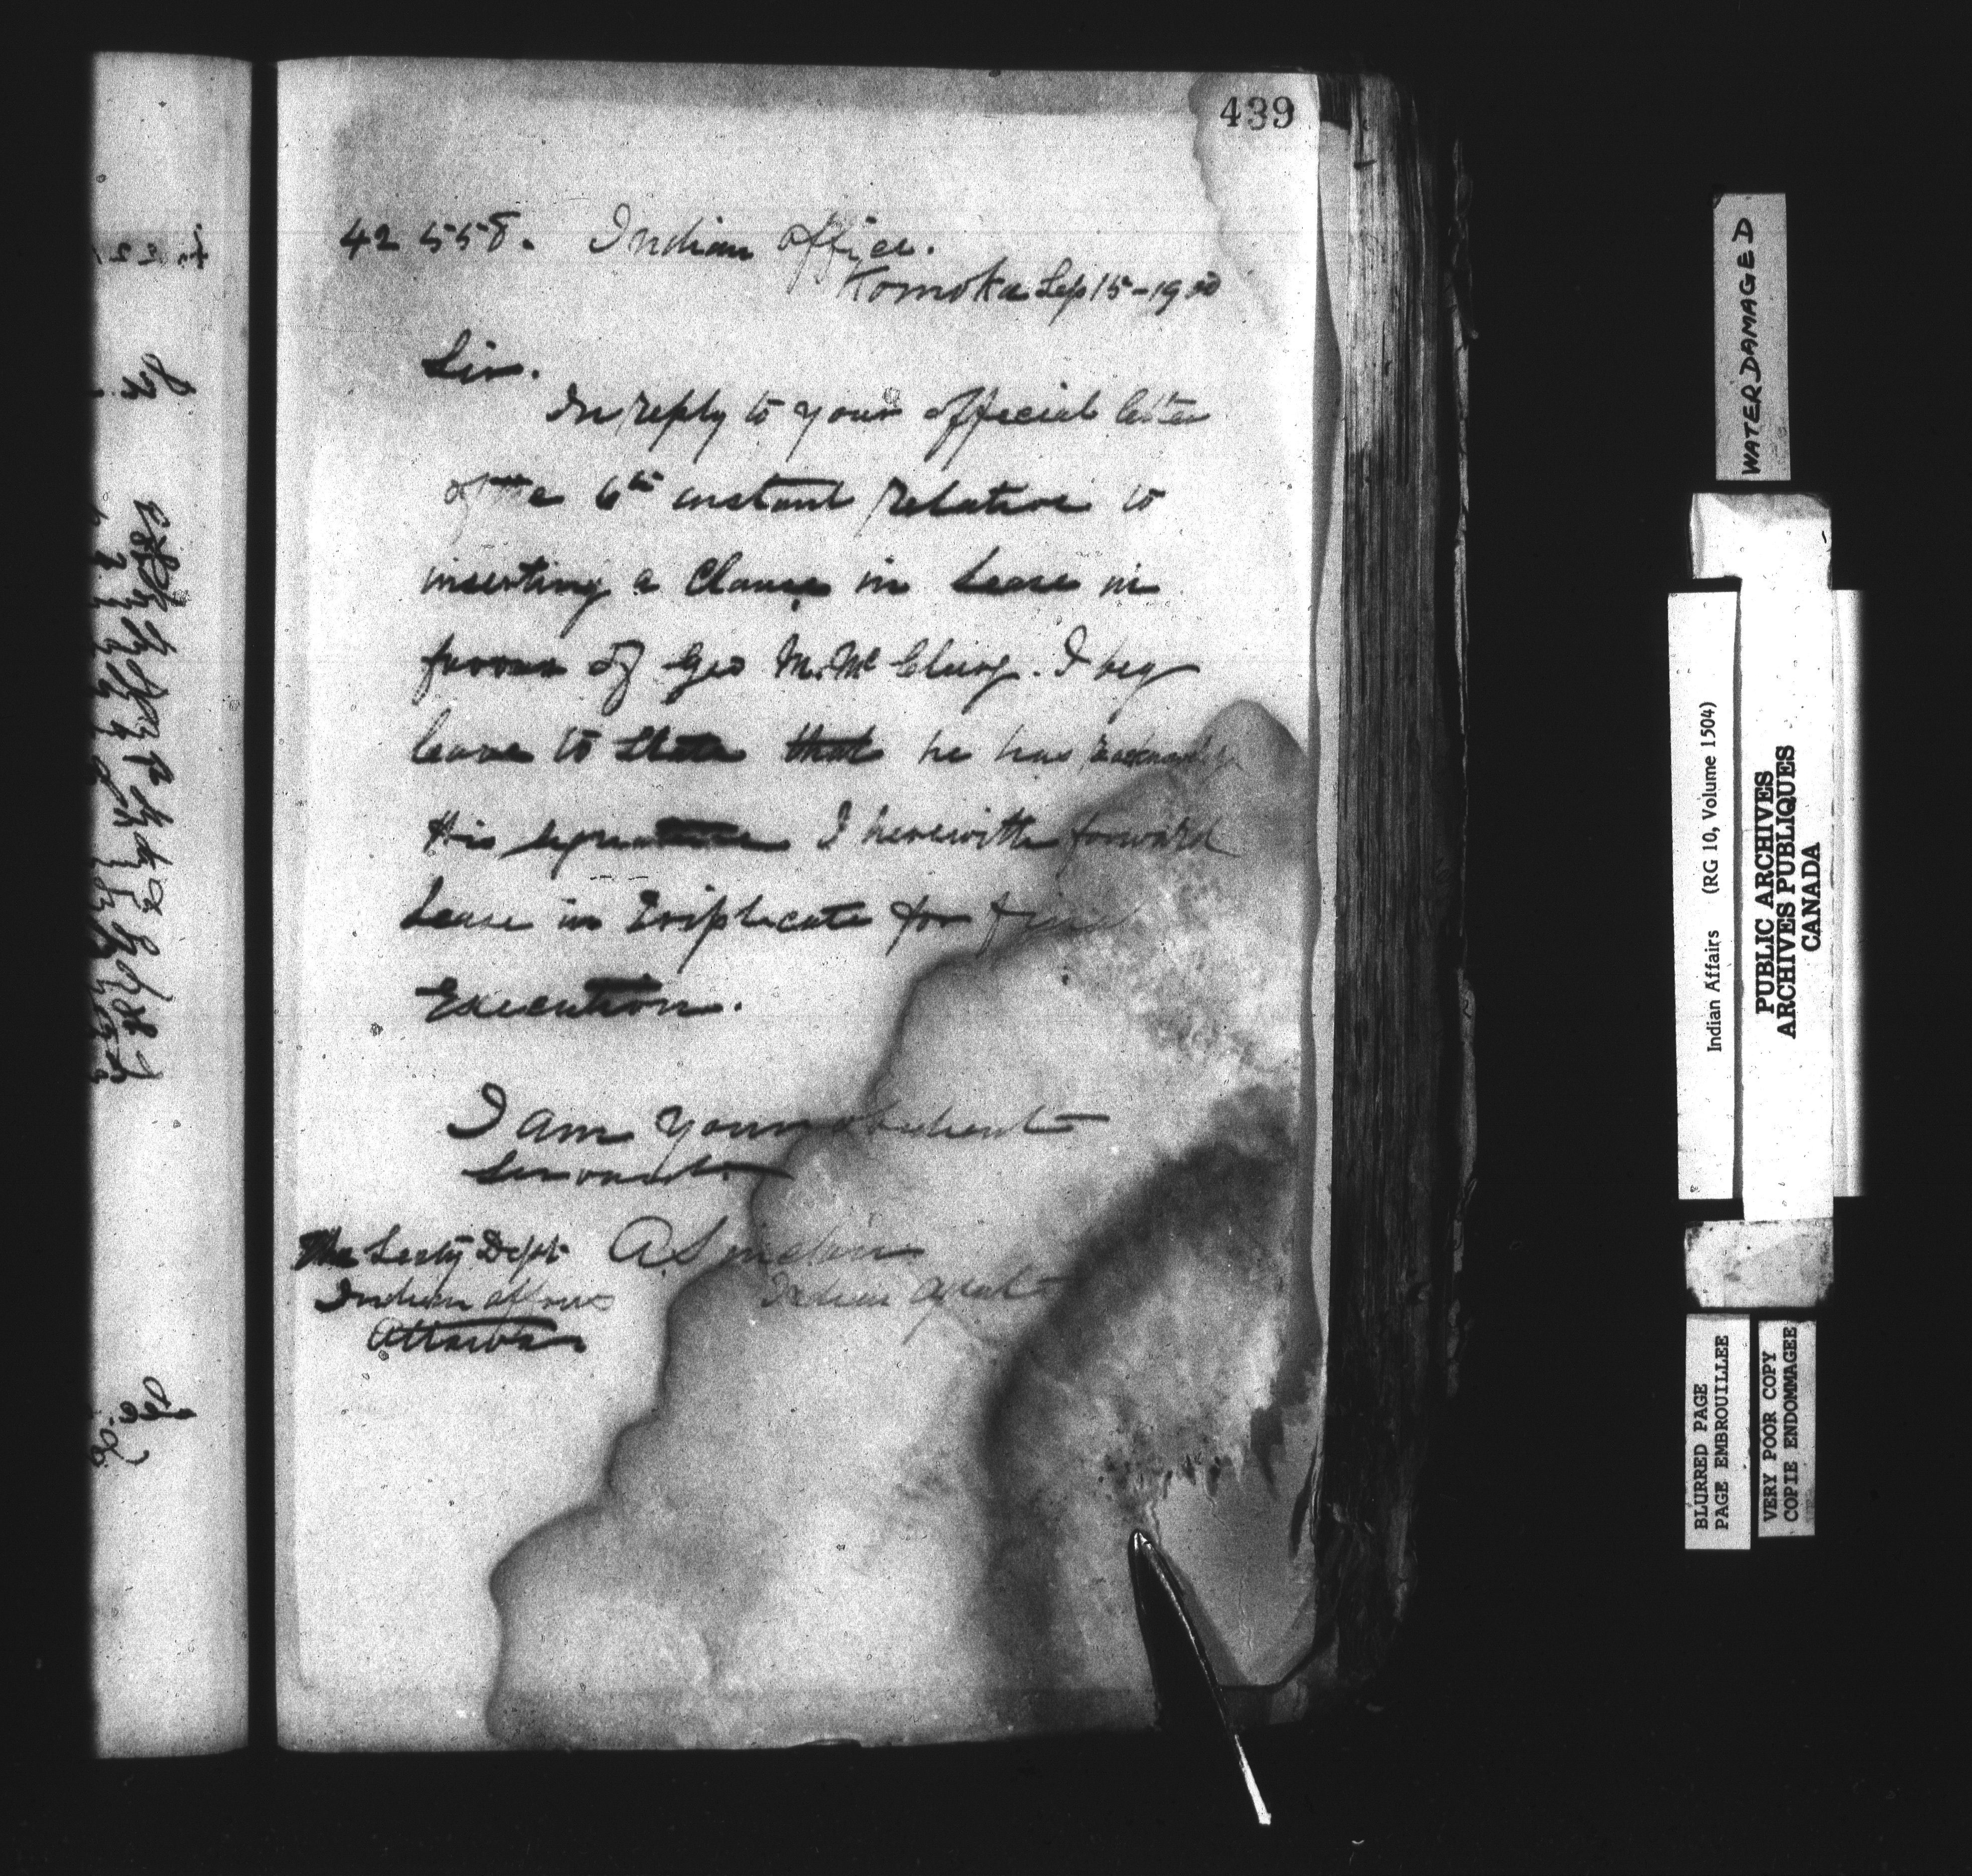 439
42 558. Indian Office.
Komoka Sep 15-1900
Sir.
In reply to your official letter
of the 6th instant relative to
inserting a Clause in Lease in
favour of Geo M. McClurg. I beg
leave to state that he has
His signature I herewith forward
Lease in Triplicate for
Execution.
I am your obedient
Servant
The Secty Dept
Indian Affairs
Ottawa
A Sinclair
Indian Agent
WATERDAMAGED
Indian Affairs (RG 10, Volume 1504)
PUBLIC ARCHIVES
ARCHIVES PUBLIQUES
CANADA
BLURRED PAGE
PAGE EMBROUILLEE
VERY POOR COPY
COPIE ENDOMMAGEE